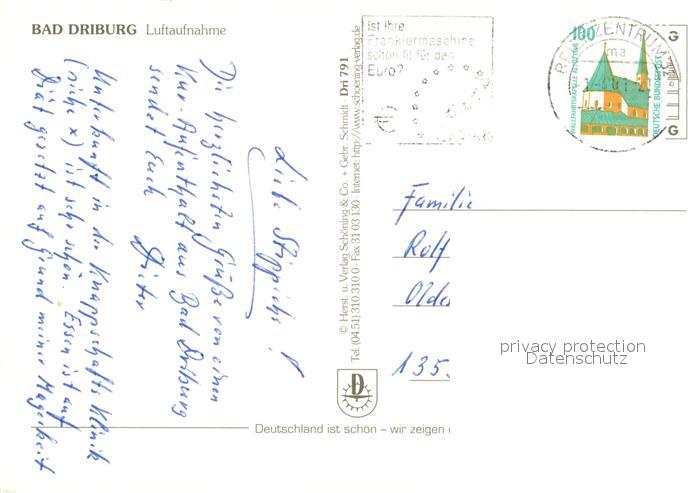 BAD DRIBURG Luftaufnahme
Liebe Stippichs!
Die herzlichsten Grüße von einem
Kur-Aufenthalt aus Bad Driburg
sendet Euch Dieter
Unterkunft in der Knappschafts Klinik
(siehe x) ist sehr schön. Essen ist auf
Diät gesetzt auf Grund meiner Magerkeit
© Herst. u. Verlag Schöning & Co. + Gebr. Schmidt · Dri 791
Tel. (04 51) 310 310 0 · Fax 31 03 130 · Internet: http://www.schoening-verlag.de
Ist Ihre
Frankiermaschine
schon fit für den
Euro?
BRIEFZENTRUM
ma
100
WALLFAHRTSKAPELLE ALTÖTTING
DEUTSCHE BUNDESPOST
G
G
Familie
Rolf
Olde
135.
privacy protection
Datenschutz
Deutschland ist schön – wir zeigen